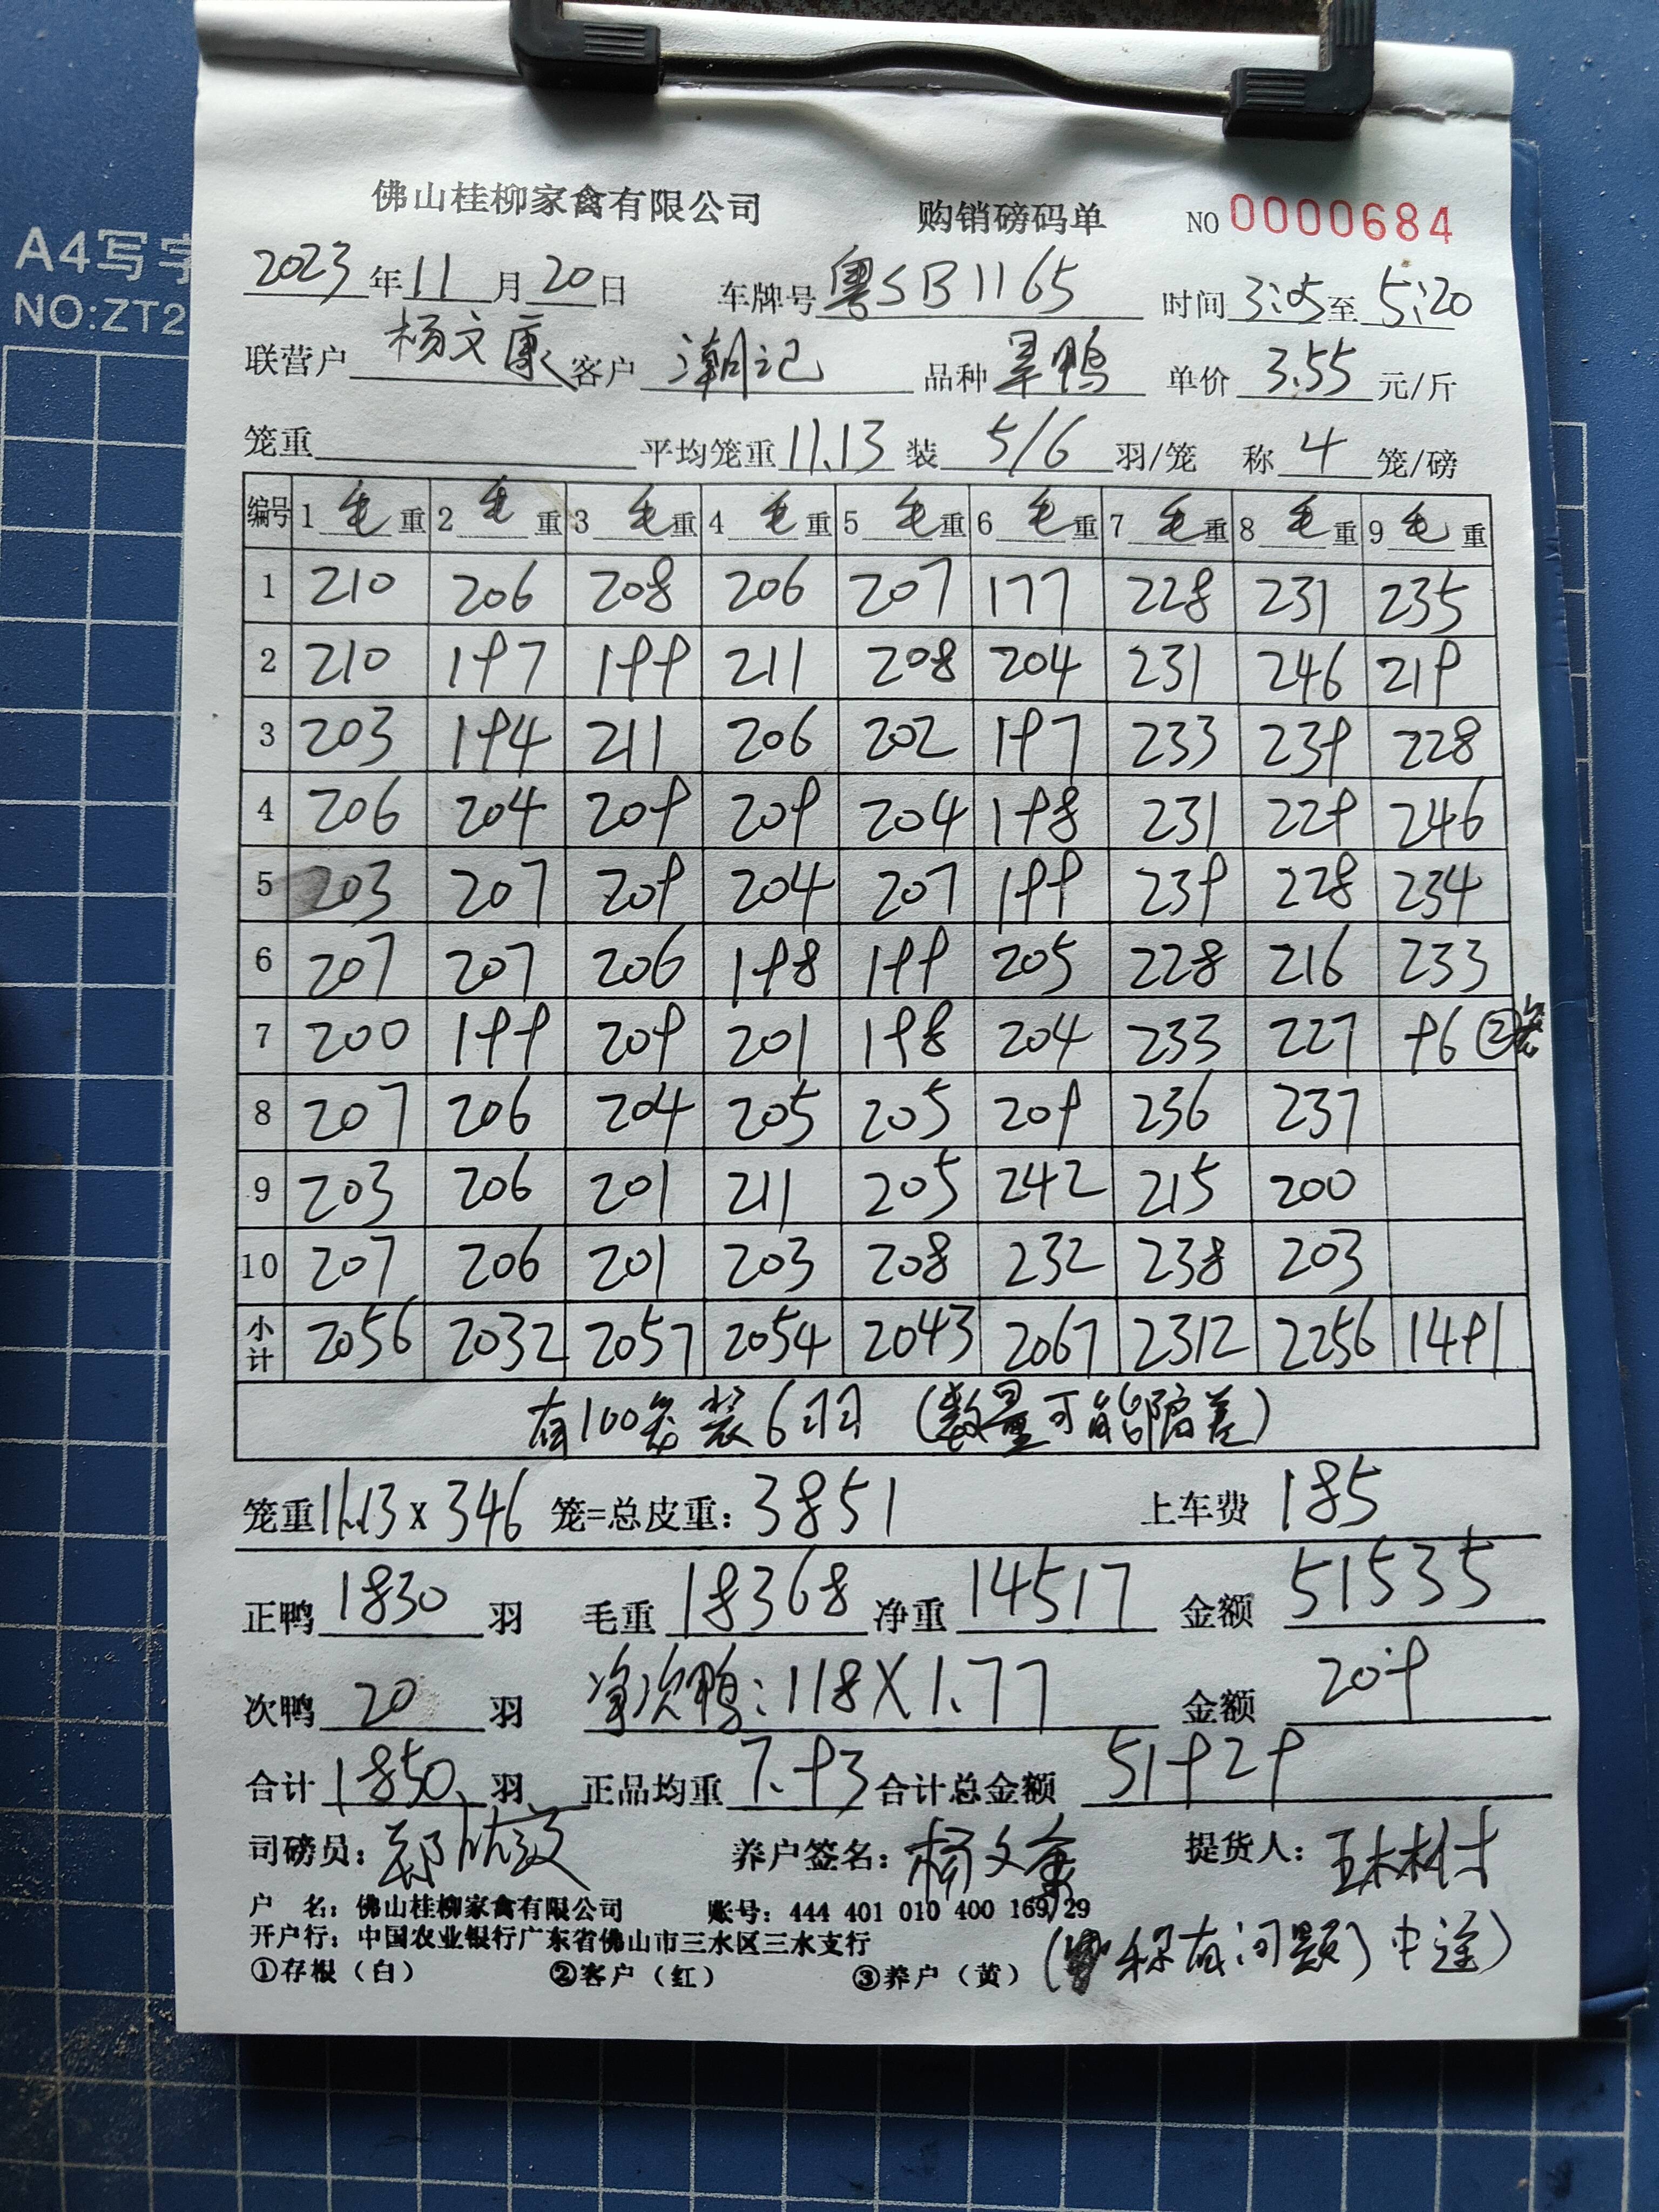 佛山桂柳家禽有限公司 购销磅码单 NO 0000684
A4写字
NO:ZT2
2023年11月20日 车牌号粤SB1165 时间3:05至5:20
联营户 杨文康 客户 潮记 品种 旱鸭 单价 3.55 元/斤
笼重 平均笼重11.13 装 5/6 羽/笼 称 4 笼/磅
编号 1 毛重 2 毛重 3 毛重 4 毛重 5 毛重 6 毛重 7 毛重 8 毛重 9 毛重
1 210 206 208 206 207 177 228 231 235
2 210 197 199 211 208 204 231 246 219
3 203 194 211 206 202 197 233 239 228
4 206 204 209 209 204 198 231 229 246
5 203 207 209 204 207 199 239 228 234
6 207 207 206 198 199 205 228 216 233
7 200 199 209 201 198 204 233 227 96 ②笼
8 207 206 204 205 205 209 236 237
9 203 206 201 211 205 242 215 200
10 207 206 201 203 208 232 238 203
小计 2056 2032 2057 2054 2043 2067 2312 2256 1491
有100笼装6羽 (数量可能偏差)
笼重11.13 x 346 笼=总皮重: 3851 上车费 185
正鸭 1830 羽 毛重 18368 净重 14517 金额 51535
次鸭 20 羽 净次鸭:118X1.77 金额 209
合计 1850 羽 正品均重 7.93 合计总金额 51929
司磅员: 养户签名: 杨文康 提货人:
户 名: 佛山桂柳家禽有限公司 账号: 444 401 010 400 169 29
开户行: 中国农业银行广东省佛山市三水区三水支行
①存根(白) ②客户(红) ③养户(黄) (称有问题)中途)